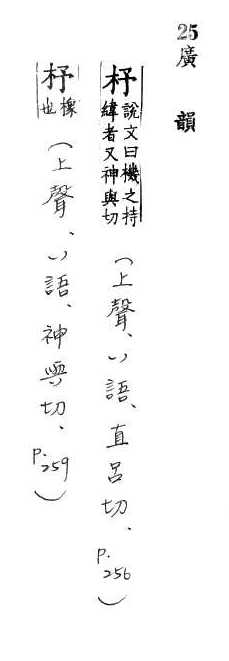 25廣韻
杼 說文曰機之持緯者又神與切 （上聲、八語、直呂切、p.256）
杼 橡也 （上聲、八語、神與切、p.259）